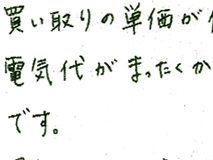 買い取りの単価が
電気代がまったくか
です。